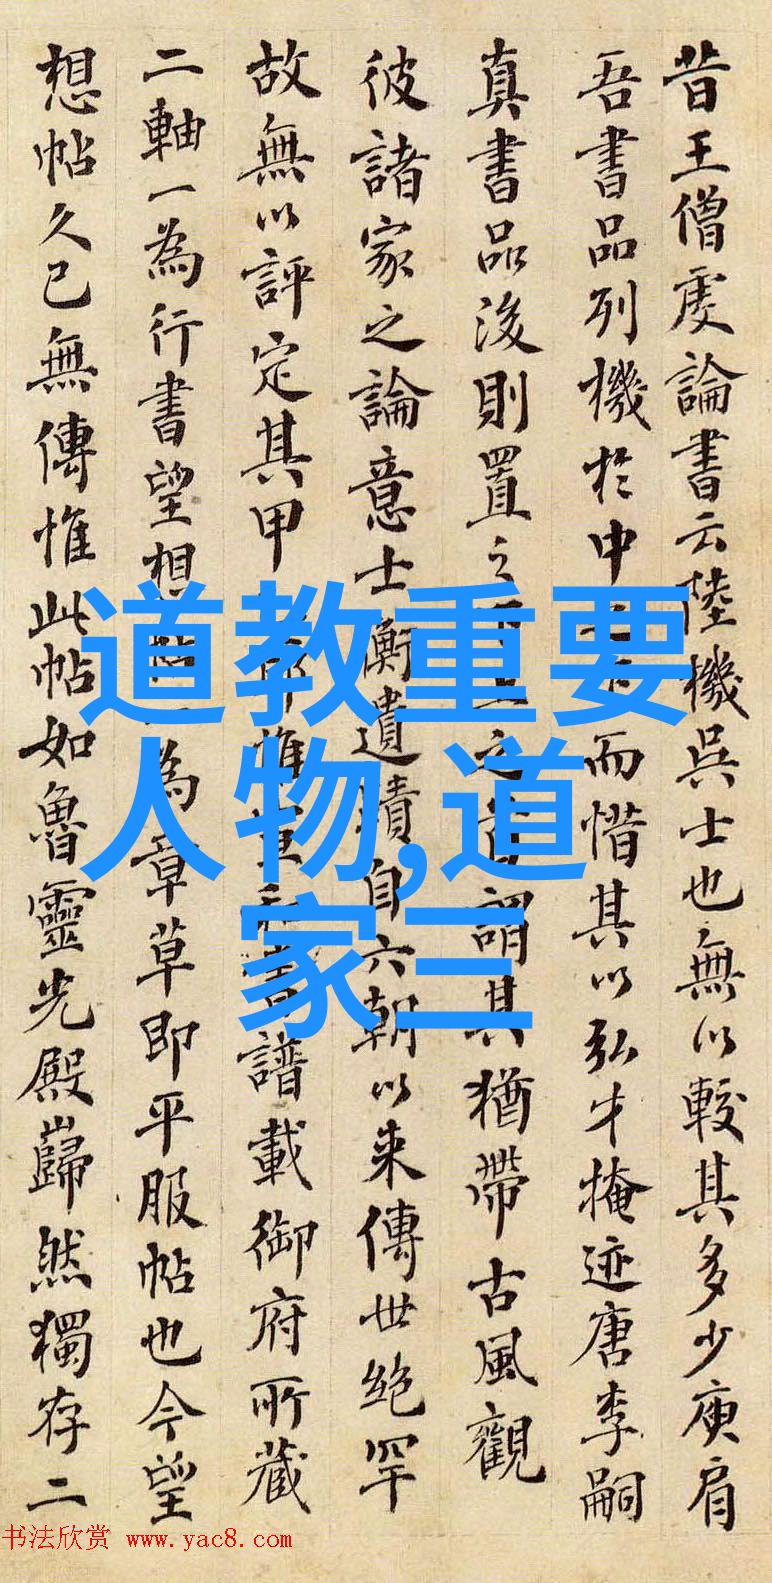 昔王僧虔論書云陸機吳士也無以較其多少庾肩
吾書品列機於中而惜其以弘才掩迹唐李嗣
真書品後則置之之謂其猶帶古風觀
彼諸家之論意士衡遺蹟自六朝以来傳世絶罕
故無以評定其甲惟宣和書譜載御府所藏
二軸一為行書望想帖一為章草即平服帖也今望
想帖久已無傳惟此帖如魯靈光殿巋然獨存二
道教重要
人物,道
家三
书法欣赏 www.yac8.com